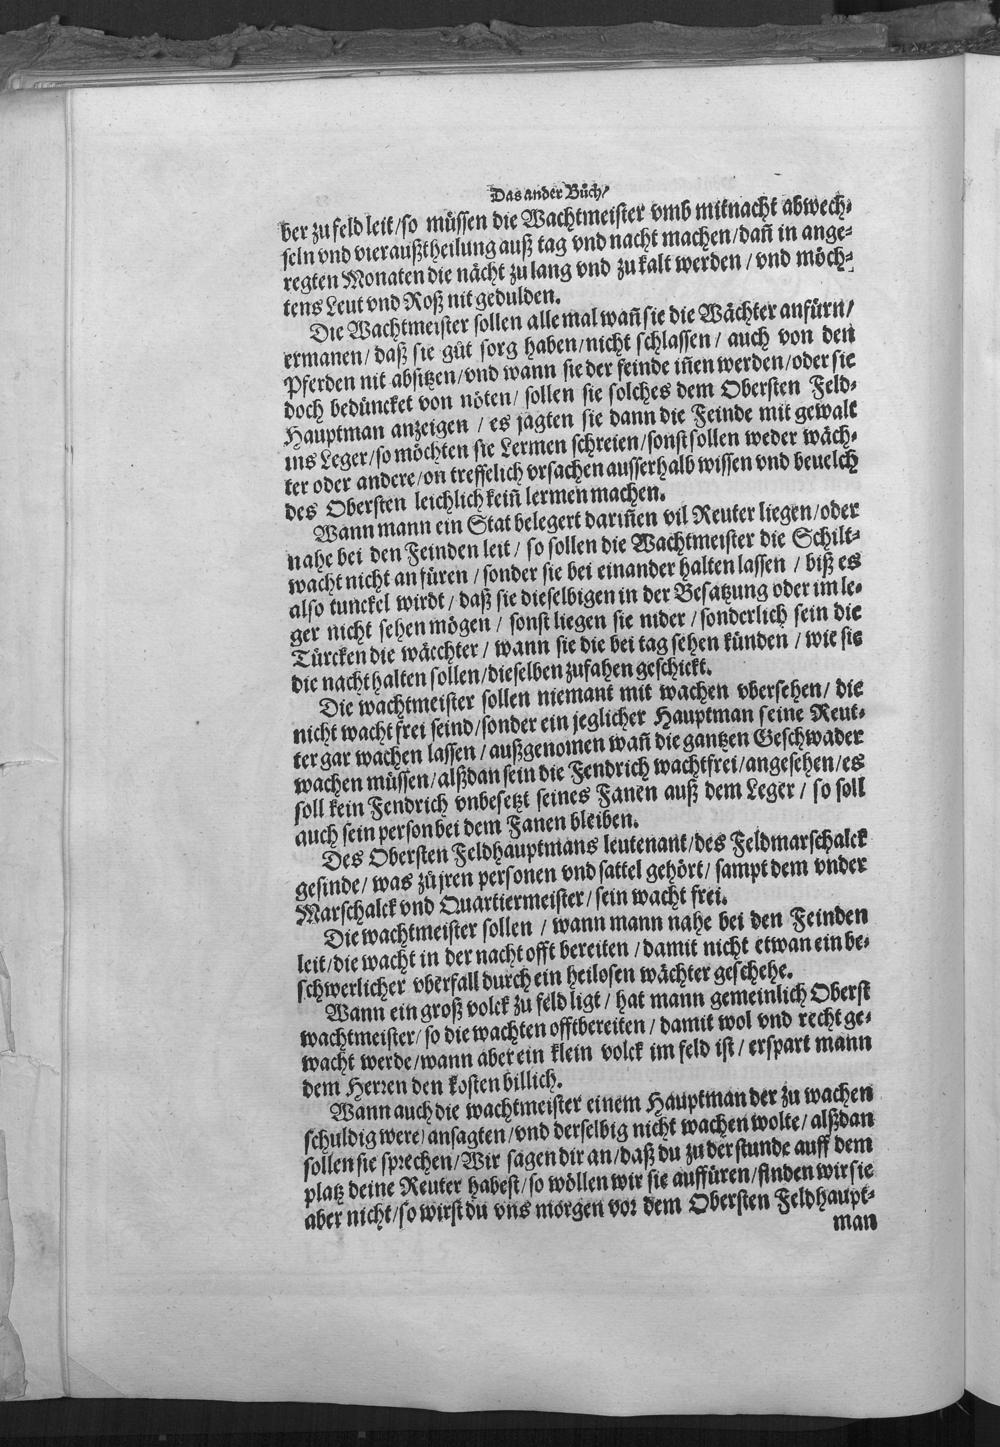 Das ander Bůch/
ber zu feld leit/so müssen die Wachtmeister vmb mitnacht abwech⸗
seln vnd vier außtheilung auß tag vnd nacht machen/dañ in ange⸗
regten Monaten die nächt zu lang vnd zu kalt werden/vnd möch⸗
tens Leut vnd Roß nit gedulden.
Die Wachtmeister sollen alle mal wañ sie die Wächter anfürn/
ermanen/daß sie gůt sorg haben/nicht schlassen/auch von den
Pferden nit absitzen/vnd wann sie der feinde iñen werden/oder sie
doch bedüncket von nöten/sollen sie solches dem Obersten Feld⸗
Hauptman anzeigen/es jagten sie dann die Feinde mit gewalt
ins Leger/so möchten sie Lermen schreien/sonst sollen weder wäch⸗
ter oder andere/on treffelich vrsachen ausserhalb wissen vnd beuelch
des Obersten leichlich keiñ lermen machen.
Wann mann ein Stat belegert dariñen vil Reuter liegen/oder
nahe bei den Feinden leit/so sollen die Wachtmeister die Schilt⸗
wacht nicht an füren/sonder sie bei einander halten lassen/biß es
also tunckel wirdt/daß sie dieselbigen in der Besatzung oder im le⸗
ger nicht sehen mögen/sonst liegen sie nider/sonderlich sein die
Türcken die wäcchter/wann sie die bei tag sehen künden/wie sie
die nacht halten sollen/dieselben zufahen geschickt.
Die wachtmeister sollen niemant mit wachen vbersehen/die
nicht wacht frei seind/sonder ein jeglicher Hauptman seine Reut⸗
ter gar wachen lassen/außgenomen wañ die gantzen Geschwader
wachen müssen/alßdan sein die Fendrich wachtfrei/angesehen/es
soll kein Fendrich vnbesetzt seines Fanen auß dem Leger/so soll
auch sein person bei dem Fanen bleiben.
Des Obersten Feldhauptmans leutenant/des Feldmarschalck
gesinde/was zů jren personen vnd sattel gehört/sampt dem vnder
Marschalck vnd Quartiermeister/sein wacht frei.
Die wachtmeister sollen/wann mann nahe bei den Feinden
leit/die wacht in der nacht offt bereiten/damit nicht etwan ein be⸗
schwerlicher vberfall durch ein heilosen wächter geschehe.
Wann ein groß volck zu feld ligt/hat mann gemeinlich Oberst
wachtmeister/so die wachten offtbereiten/damit wol vnd recht ge⸗
wacht werde/wann aber ein klein volck im feld ist/erspart mann
dem Herren den kosten billich.
Wann auch die wachtmeister einem Hauptman der zu wachen
schuldig were) ansagten/vnd derselbig nicht wachen wolte/alßdan
sollen sie sprechen/Wir sagen dir an/daß du zu der stunde auff dem
platz deine Reuter habest/so wöllen wir sie auffüren/finden wir sie
aber nicht/so wirst du vns morgen vor dem Obersten Feldhaupt⸗
man